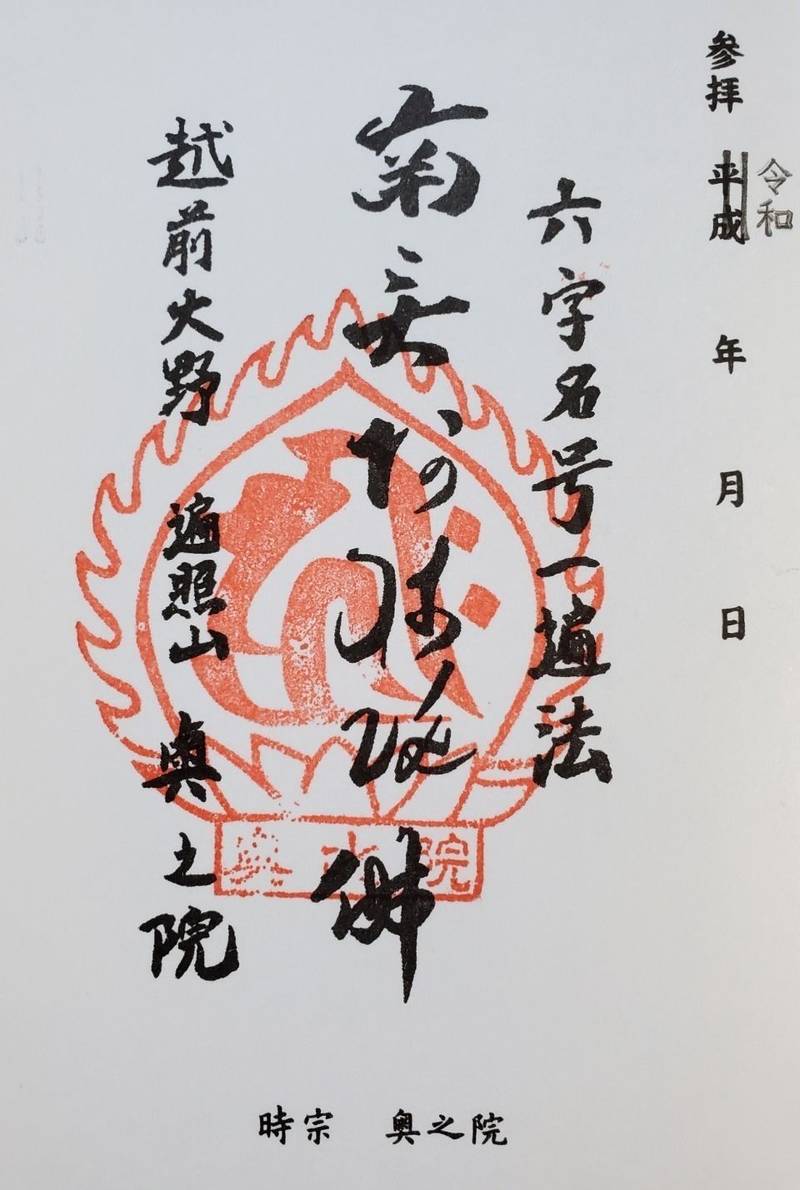 参拝 平成 年 月 日
令和
六字名号一遍法
南無阿弥陀佛
越前大野 遍照山 奥之院
奥之院
時宗 奥之院